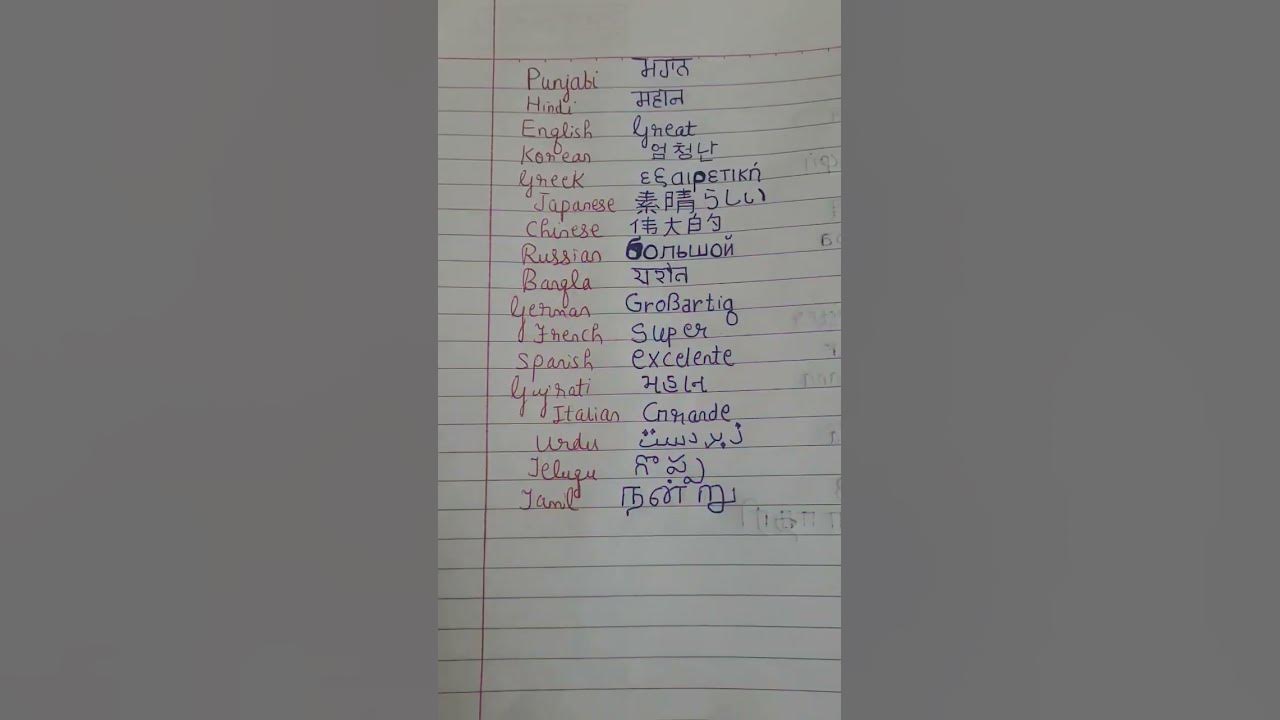 Punjabi ਮਹਾਨ
Hindi महान
English Great
Korean 엄청난
Greek εξαιρετική
Japanese 素晴らしい
Chinese 伟大的
Russian большой
Bangla
German Großartig
French Super
Spanish excelente
Gujrati મહાન
Italian Grande
Urdu زبردست
Telugu గొప్ప
Tamil நன்று